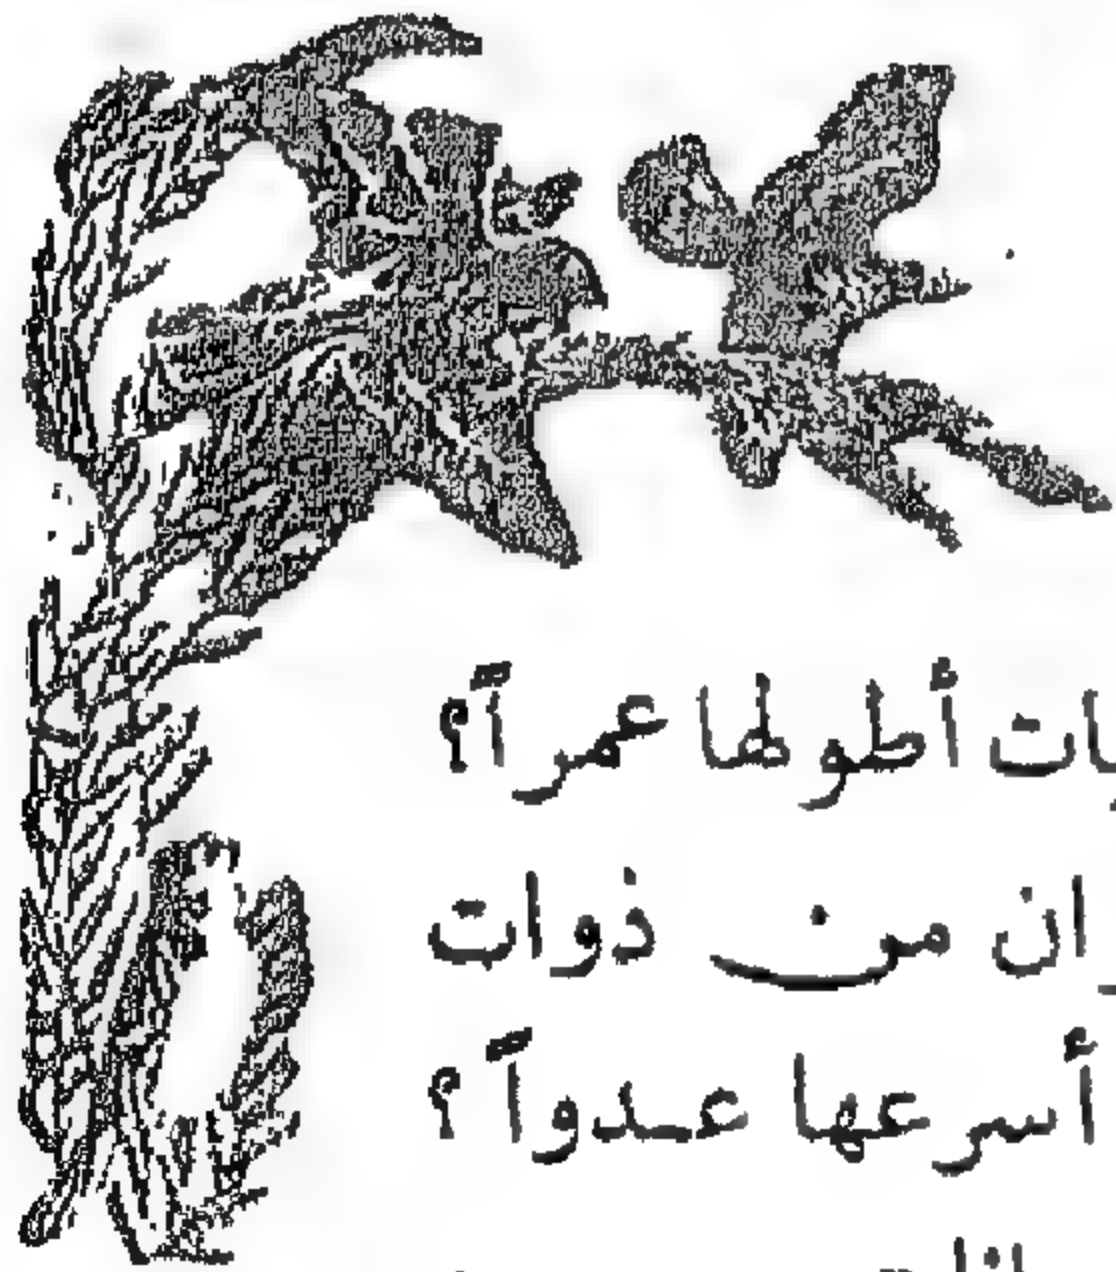 أطولها عمراً؟
من ذوات
أسرعها عدواً؟